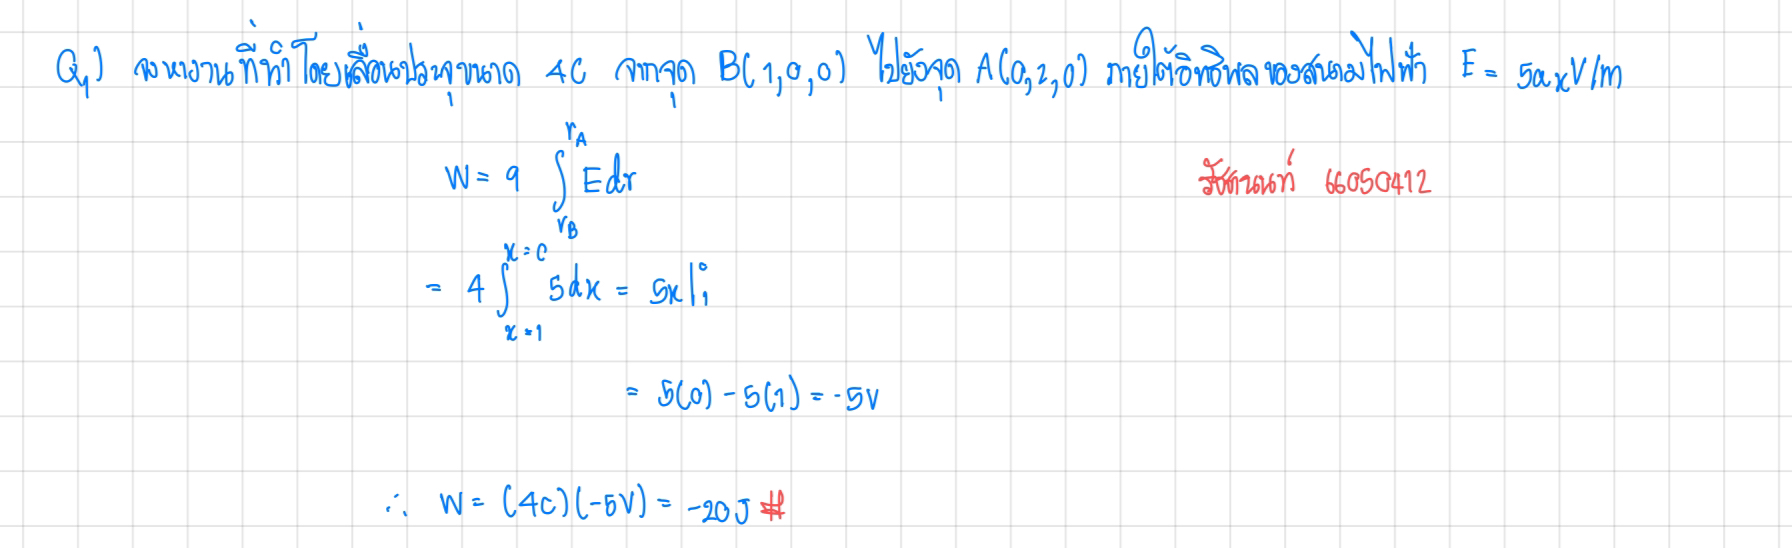 Q1) จงหางานที่ทำโดยเลื่อนประจุขนาด 4C จากจุด B(1,0,0) ไปยังจุด A(0,2,0) ภายใต้อิทธิพลของสนามไฟฟ้า E = 5axV/m
W = q ∫ Edr
rA
rB
รัชตานนท์ 66050412
= 4 ∫ 5dx = 5x|
x=0
x=1
0
1
= 5(0) - 5(1) = -5V
∴ W = (4C)(-5V) = -20J #